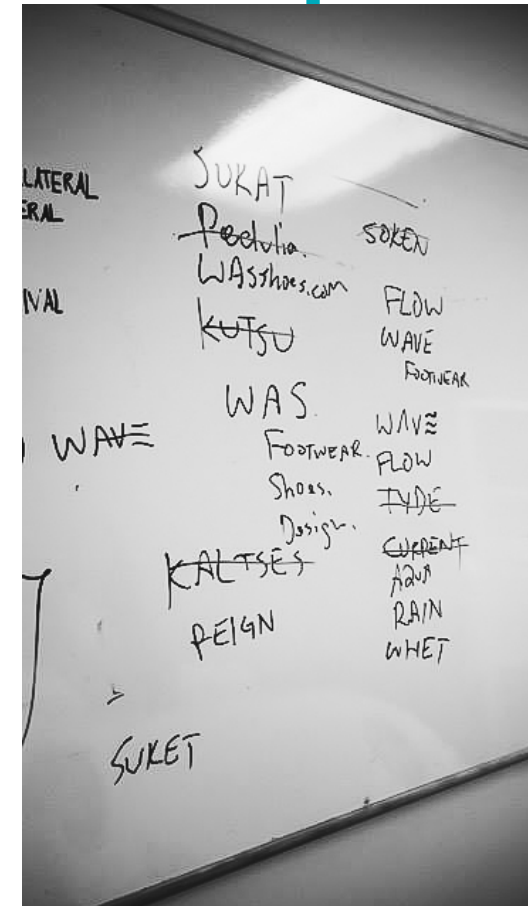 LATERAL
ERAL
IVAL
WAVE
SUKAT
Pedulia.
WASshoes.com
KUTSU
WAS.
FOOTWEAR.
Shoes.
Design.
KALTSES
REIGN
SUKET
SOKEN
FLOW
WAVE
FOOTWEAR
WAVE
FLOW
TYDE
CURRENT
AQUA
RAIN
WHET